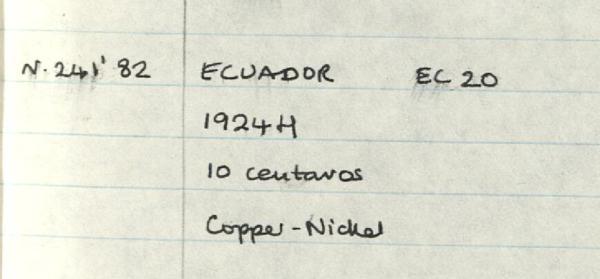 N.241'82 ECUADOR EC 20
1924H
10 centavos
Copper-Nickel